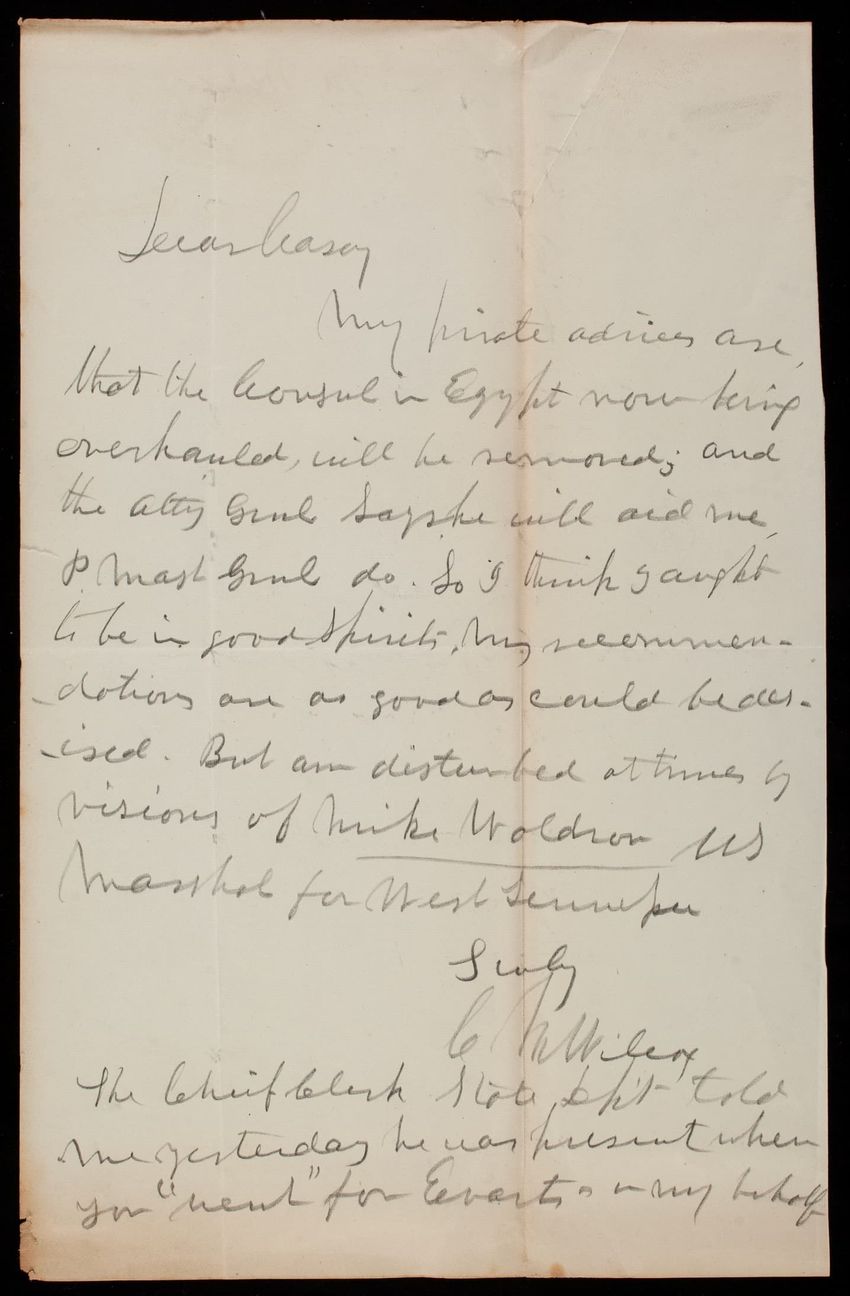 Dear Casey
My private advices are,
that the Consul in Egypt now being
overhauled, will be removed; and
the Atty Genl says he will aid me,
P. Mast Genl do. So I think I aught
to be in good spirits, My recommen-
-dations are as good as could be des-
-ised. But am disturbed at times by
visions of Mike Woldron US
Marshal for West Tennessee
C M Wilcox
The Chief Clerk State Dept told
me yesterday he was present when
you "went" for Evarts in my behalf